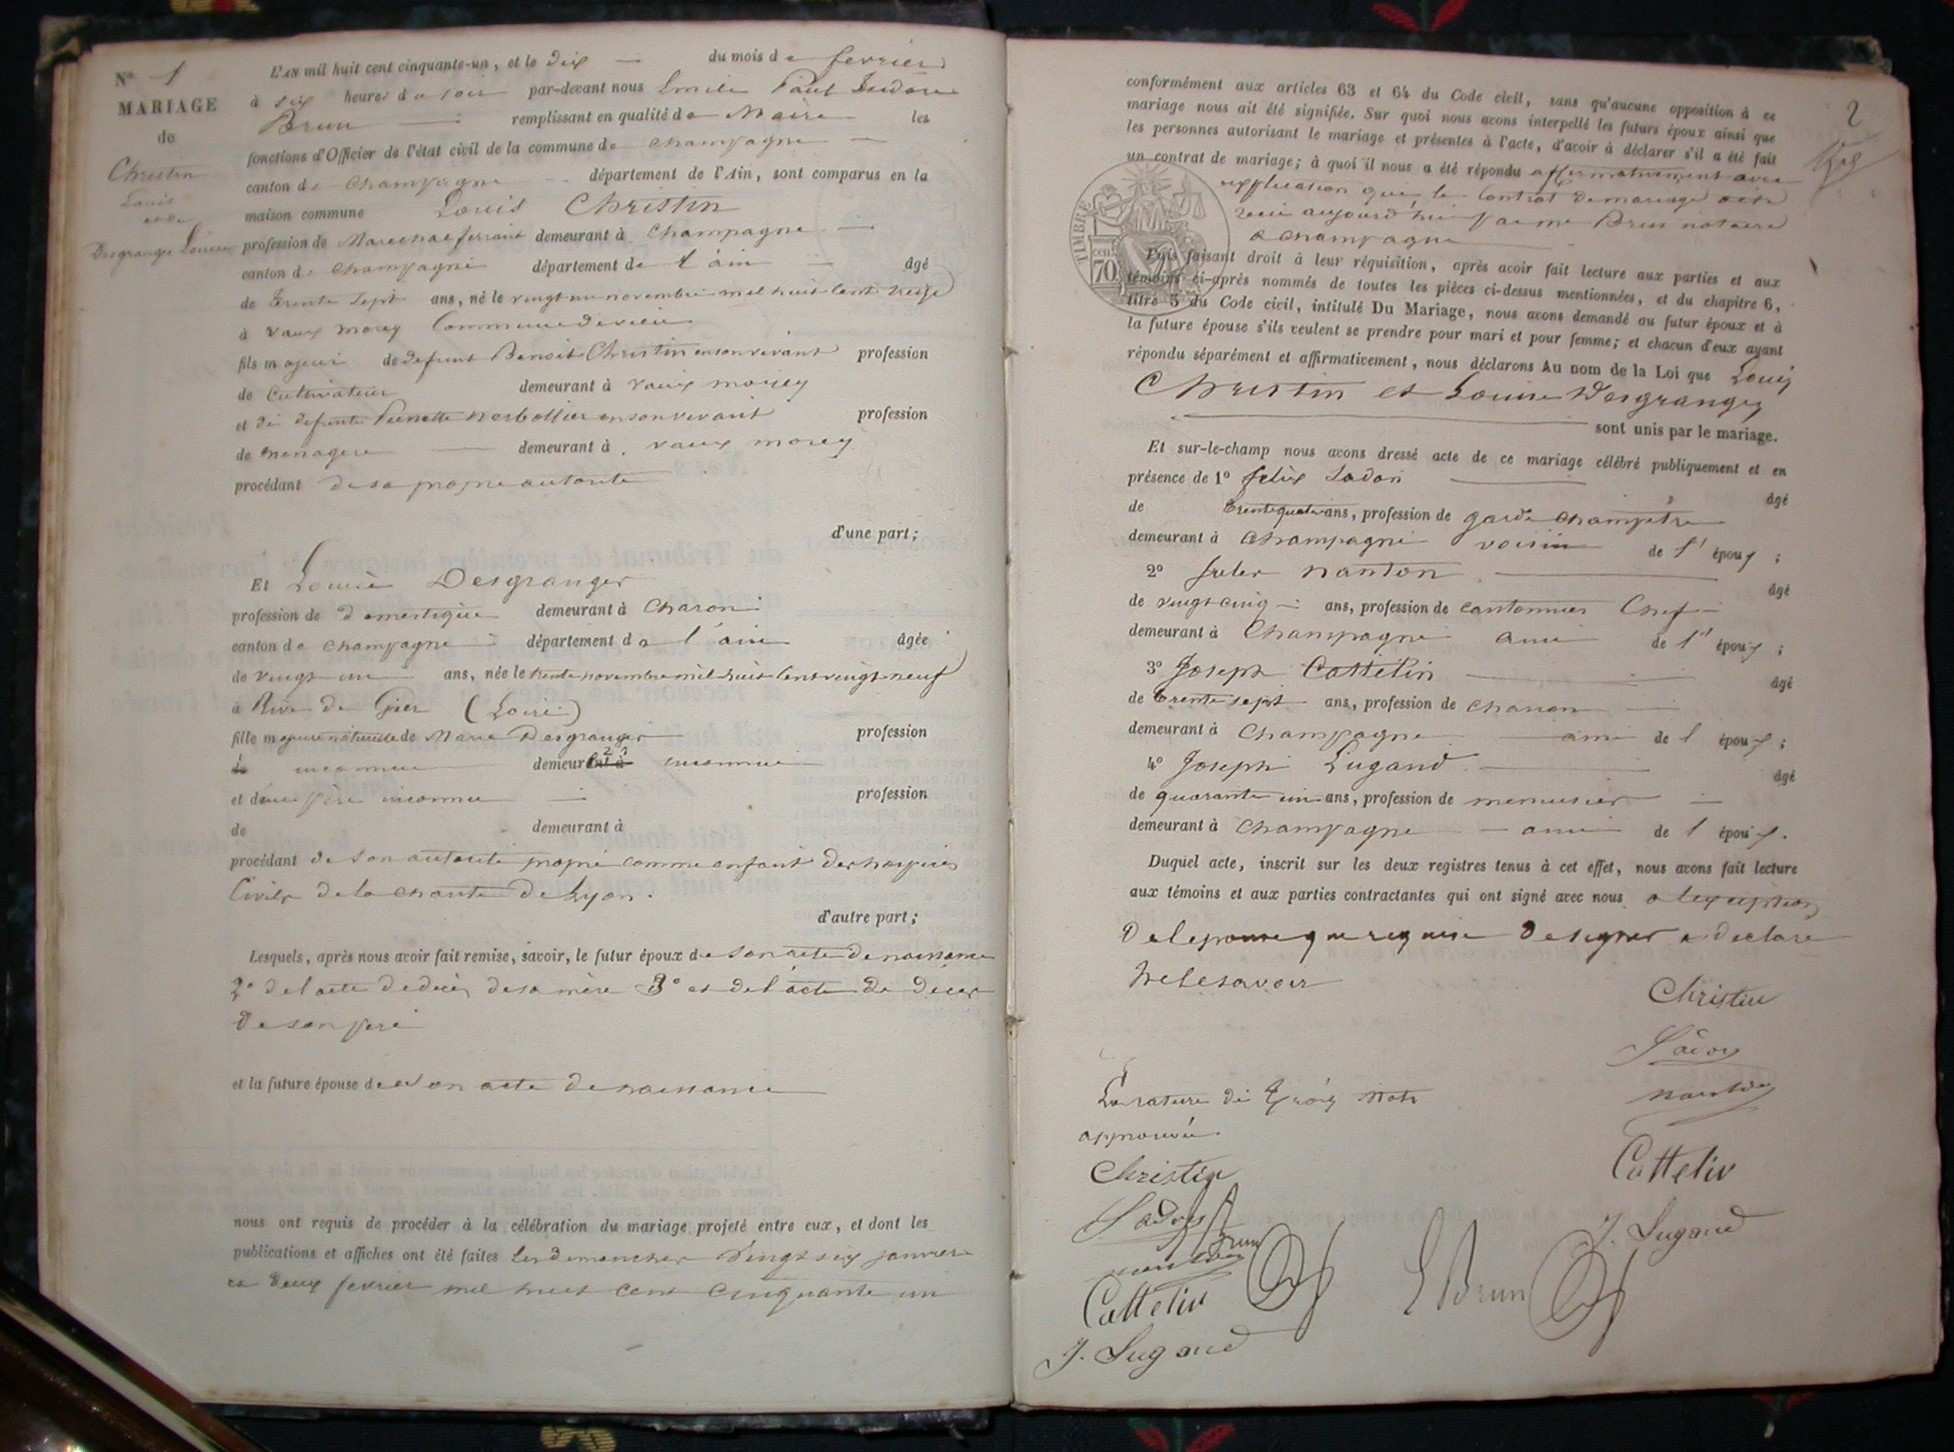 N° 1
MARIAGE
de
Christin
Louis
et de
Desgranges Louise
L'AN mil huit cent cinquante-un, et le dix du mois de fevrier
à six heures du soir par-devant nous Emile Paul Isidore
Brun remplissant en qualité de Maire les
fonctions d'Officier de l'état civil de la commune de champagne
canton de Champagne département de l'Ain, sont comparus en la
maison commune Louis Christin
profession de Marechal ferrant demeurant à Champagne
canton de Champagne département de l'ain âgé
de trente sept ans, né le vingt un novembre mil huit cent treize
à vaux morey Commune de
fils majeur de defunt Benoit Christin en son vivant profession
de Cultivateur demeurant à vaux morey
et de defunte Pierrette en son vivant profession
de menagere demeurant à vaux morey
procédant de sa propre autorité
d'une part;
Et Louise Desgranges
profession de domestique demeurant à Charon
canton de champagne département de l'ain âgée
de vingt un ans, née le trente novembre mil huit cent vingt neuf
à Rive de Gier (Loire)
fille majeure naturelle de Marie Desgranges profession
de inconnue demeurant à inconnue
et d'un père inconnu profession
de demeurant à
procédant de son autorité propre comme enfant des hospices
Civils de la charité de Lyon.
d'autre part;
Lesquels, après nous avoir fait remise, savoir, le futur époux de son acte de naissance
2° de l'acte de décès de sa mère 3° et de l'acte de décès
de son père
et la future épouse de son acte de naissance
nous ont requis de procéder à la célébration du mariage projeté entre eux, et dont les
publications et affiches ont été faites les dimanches vingt six janvier
et deux fevrier mil huit cent cinquante un
2
conformément aux articles 63 et 64 du Code civil, sans qu'aucune opposition à ce
mariage nous ait été signifiée. Sur quoi nous avons interpellé les futurs époux ainsi que
les personnes autorisant le mariage et présentes à l'acte, d'avoir à déclarer s'il a été fait
un contrat de mariage; à quoi il nous a été répondu affirmativement avec
explication que le contrat de mariage a été
recu aujourd'hui par me Brun notaire
a champagne
TIMBRE
70 cen
Puis faisant droit à leur réquisition, après avoir fait lecture aux parties et aux
témoins ci-après nommés de toutes les pièces ci-dessus mentionnées, et du chapitre 6,
titre 5 du Code civil, intitulé Du Mariage, nous avons demandé au futur époux et à
la future épouse s'ils veulent se prendre pour mari et pour femme; et chacun d'eux ayant
répondu séparément et affirmativement, nous déclarons Au nom de la Loi que Louis
Christin et Louise Desgranges
sont unis par le mariage.
Et sur-le-champ nous avons dressé acte de ce mariage célébré publiquement et en
présence de 1° felix Ladon âgé
de trente quatre ans, profession de garde champêtre
demeurant à Champagne voisin de l' époux;
2° Jules Nanton âgé
de vingt cinq ans, profession de cantonnier Chef
demeurant à Champagne ami de l' époux;
3° Joseph Cattelin âgé
de trente sept ans, profession de charron
demeurant à Champagne ami de l époux;
4° Joseph Lugand âgé
de quarante un ans, profession de menuisier
demeurant à Champagne ami de l époux.
Duquel acte, inscrit sur les deux registres tenus à cet effet, nous avons fait lecture
aux témoins et aux parties contractantes qui ont signé avec nous a l'exception
de lepouse que requise de signer a declaré
ne le savoir
Christin
Ladon
Nanton
Cattelin
J. Lugand
La rature de trois mots
approuvée
Christin
Ladon
Brun
Nanton
Cattelin
J. Lugand
E Brun